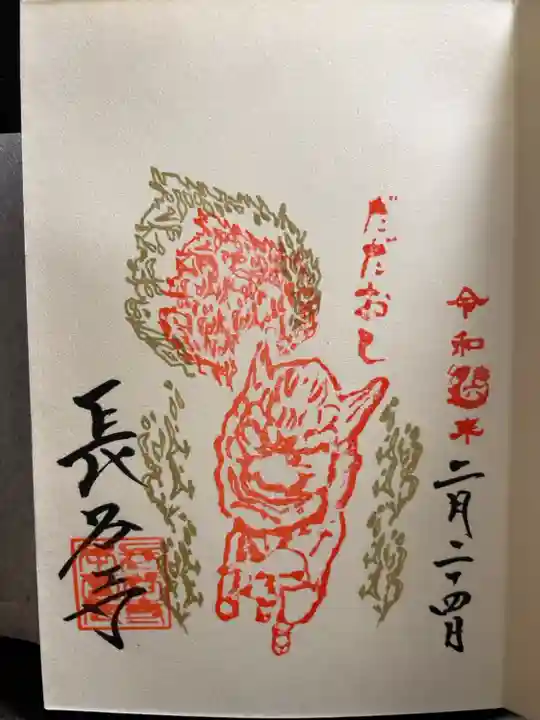 令和 年 二月二十四日
だだおし
長谷寺